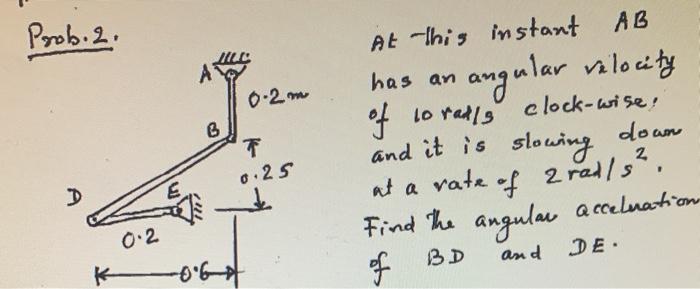 Prob. 2.
At this instant AB
has an angular velocity
of 10 rad/s clock-wise,
and it is slowing down
at a rate of 2 rad/s².
Find the angular acceleration
of BD and DE.
A
0.2 m
B
0.25
D
E
0.2
0.6